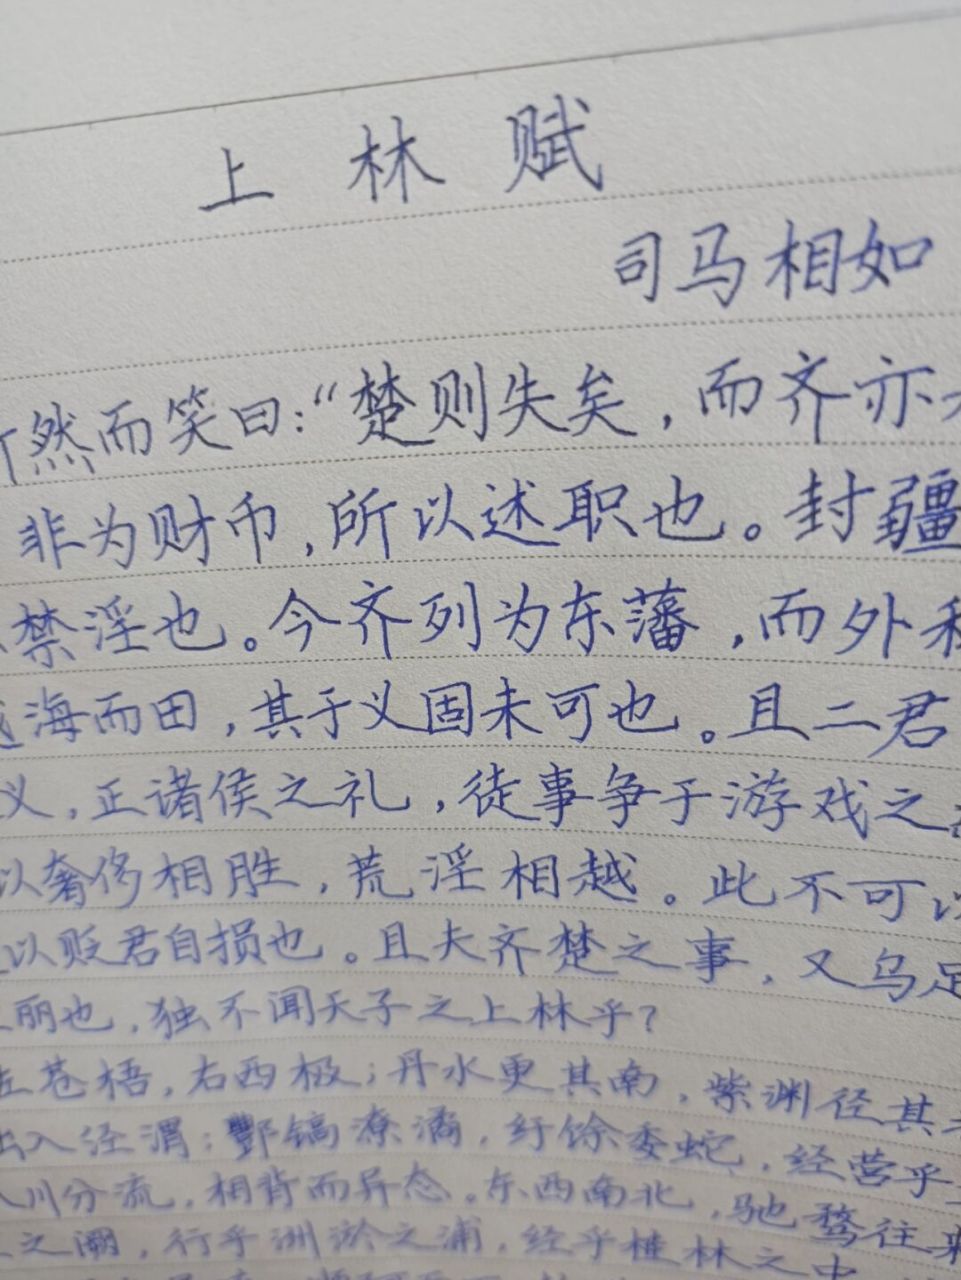 上林赋
司马相如
然而笑曰：“楚则失矣，而齐亦
非为财币，所以述职也。封疆
禁淫也。今齐列为东藩，而外
海而田，其于义固未可也。且二君
义，正诸侯之礼，徒事争于游戏之
以奢侈相胜，荒淫相越。此不可以
以贬君自损也。且夫齐楚之事，又乌足
丽也，独不闻天子之上林乎？
左苍梧，右西极；丹水更其南，紫渊径其
出入泾渭；酆镐潦潏，纡馀委蛇，经营乎
川分流，相背而异态。东西南北，驰骛往来
之阙，行乎洲淤之浦，经乎桂林之中